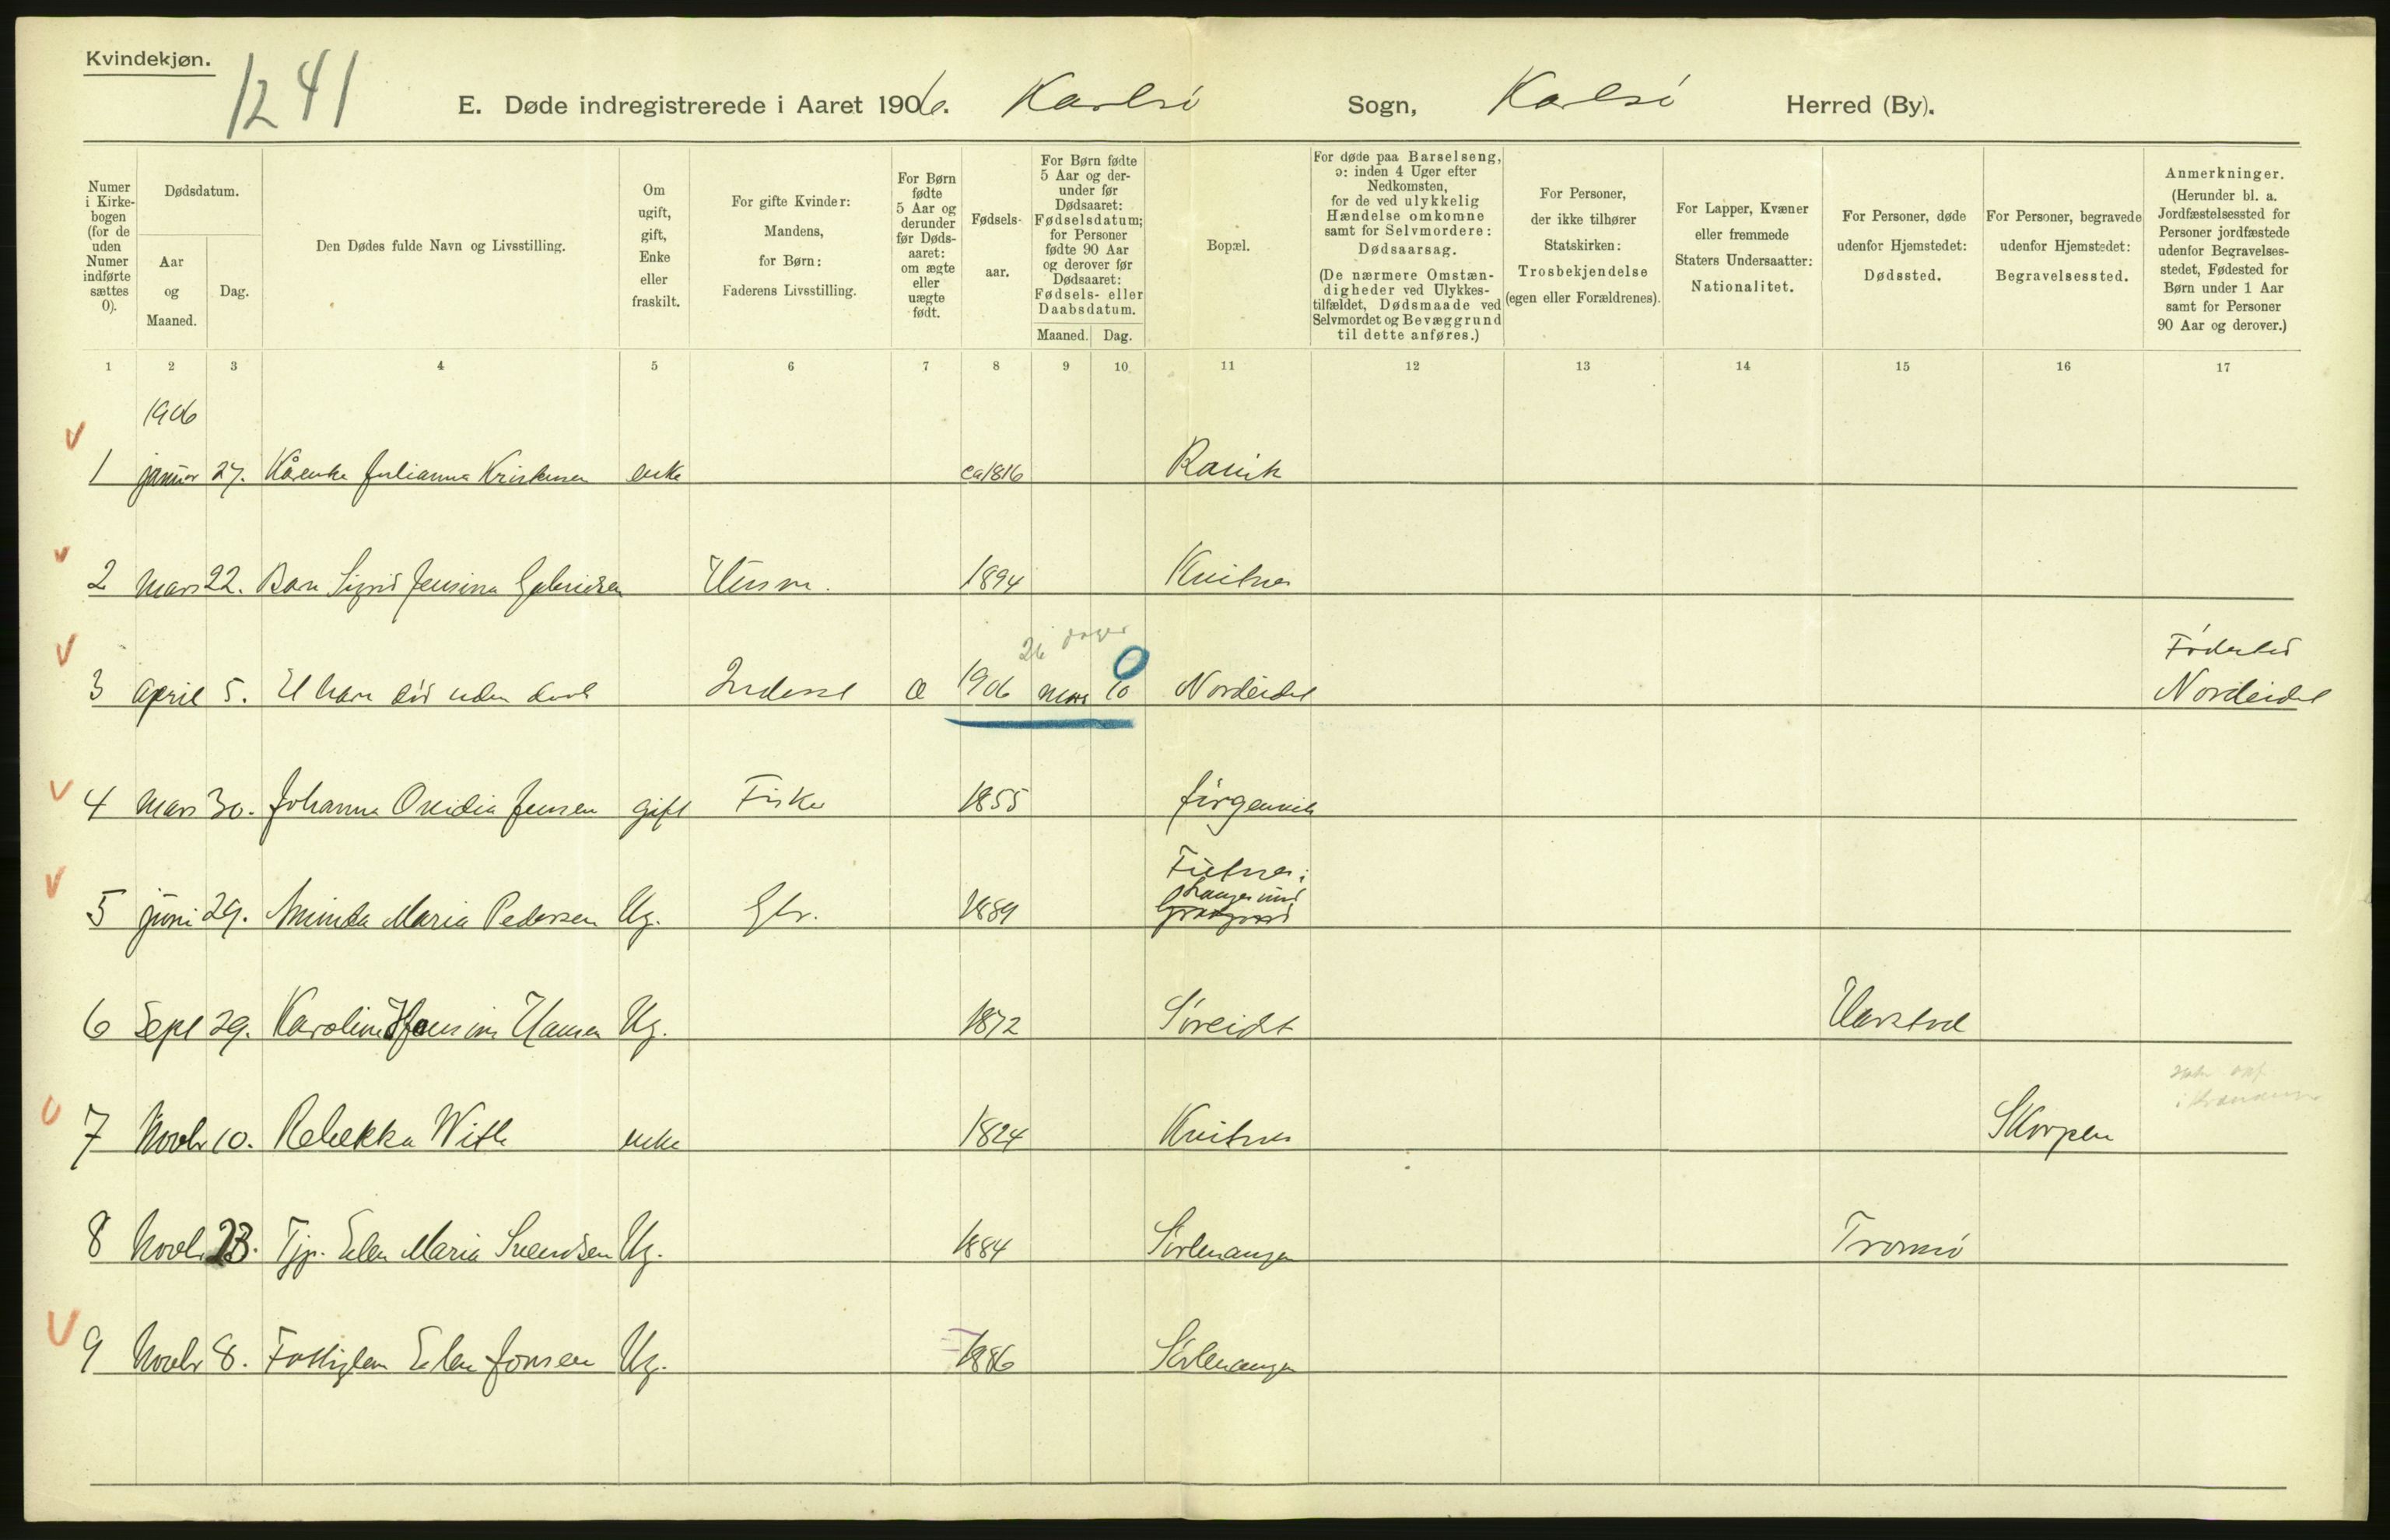 Kvindekjøn.
1241
E. Døde indregistrerede i Aaret 1906. Karlsö Sogn, Karlsö Herred (By).
Numer i Kirkebogen (for de uden Numer indførte sættes 0).
Dødsdatum.
Aar og Maaned.
Dag.
Den Dødes fulde Navn og Livsstilling.
Om ugift, gift, Enke eller fraskilt.
For gifte Kvinder: Mandens, for Børn: Faderens Livsstilling.
For Børn fødte 5 Aar og derunder før Dødsaaret: om ægte eller uægte født.
Fødselsaar.
For Børn fødte 5 Aar og derunder før Dødsaaret: Fødselsdatum; for Personer fødte 90 Aar og derover før Dødsaaret: Fødsels- eller Daabsdatum.
Maaned. Dag.
Bopæl.
For døde paa Barselseng, ɔ: inden 4 Uger efter Nedkomsten, for de ved ulykkelig Hændelse omkomne samt for Selvmordere: Dødsaarsag.
(De nærmere Omstændigheder ved Ulykkestilfældet, Dødsmaade ved Selvmordet og Bevæggrund til dette anføres.)
For Personer, der ikke tilhører Statskirken: Trosbekjendelse (egen eller Forældrenes).
For Lapper, Kvæner eller fremmede Staters Undersaatter: Nationalitet.
For Personer, døde udenfor Hjemstedet: Dødssted.
For Personer, begravede udenfor Hjemstedet: Begravelsessted.
Anmerkninger. (Herunder bl. a. Jordfæstelsessted for Personer jordfæstede udenfor Begravelsesstedet, Fødested for Børn under 1 Aar samt for Personer 90 Aar og derover.)
1 2 3 4 5 6 7 8 9 10 11 12 13 14 15 16 17
1906
1 januar 27. Julianna Kristensen enke ca 1816 Ravik
2 Mars 22. Barn Sigrid Jensina Gabrielsen 1894 Kvitnes
26 dager
3 April 5. Et barn död uden daab Inderst Æ 1906 Mars 10 0 Nordeidet Födested Nordeidet
4 Mars 30. Johanna Ovidia Jensen gift Fisker 1855 Jörgenvik
5 juni 29. Maria Pedersen Ug. Gbr. 1889
6 Sept 29. Hansen Ug. 1872 Söreidet Harstad
7 Novbr 10. Rebekka With enke 1824 Kvitnes Skorpen
8 Novbr 23. Tjp. Elen Maria Svendsen Ug. 1884 Sörlenangen Tromsö
9 Novbr 8. Fattiglem Elen Jonsen Ug. 1886 Sörlenangen